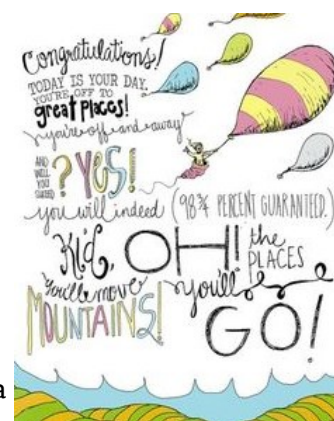 Congratulations!
TODAY IS YOUR DAY.
YOU'RE OFF TO
great Places!
you're off and away!
AND
WILL
YOU
SUCCEED
? YES!
you will indeed (98¾ PERCENT GUARANTEED.)
Kid, OH! the
PLACES
you'll move you'll
MOUNTAINS! GO!
a